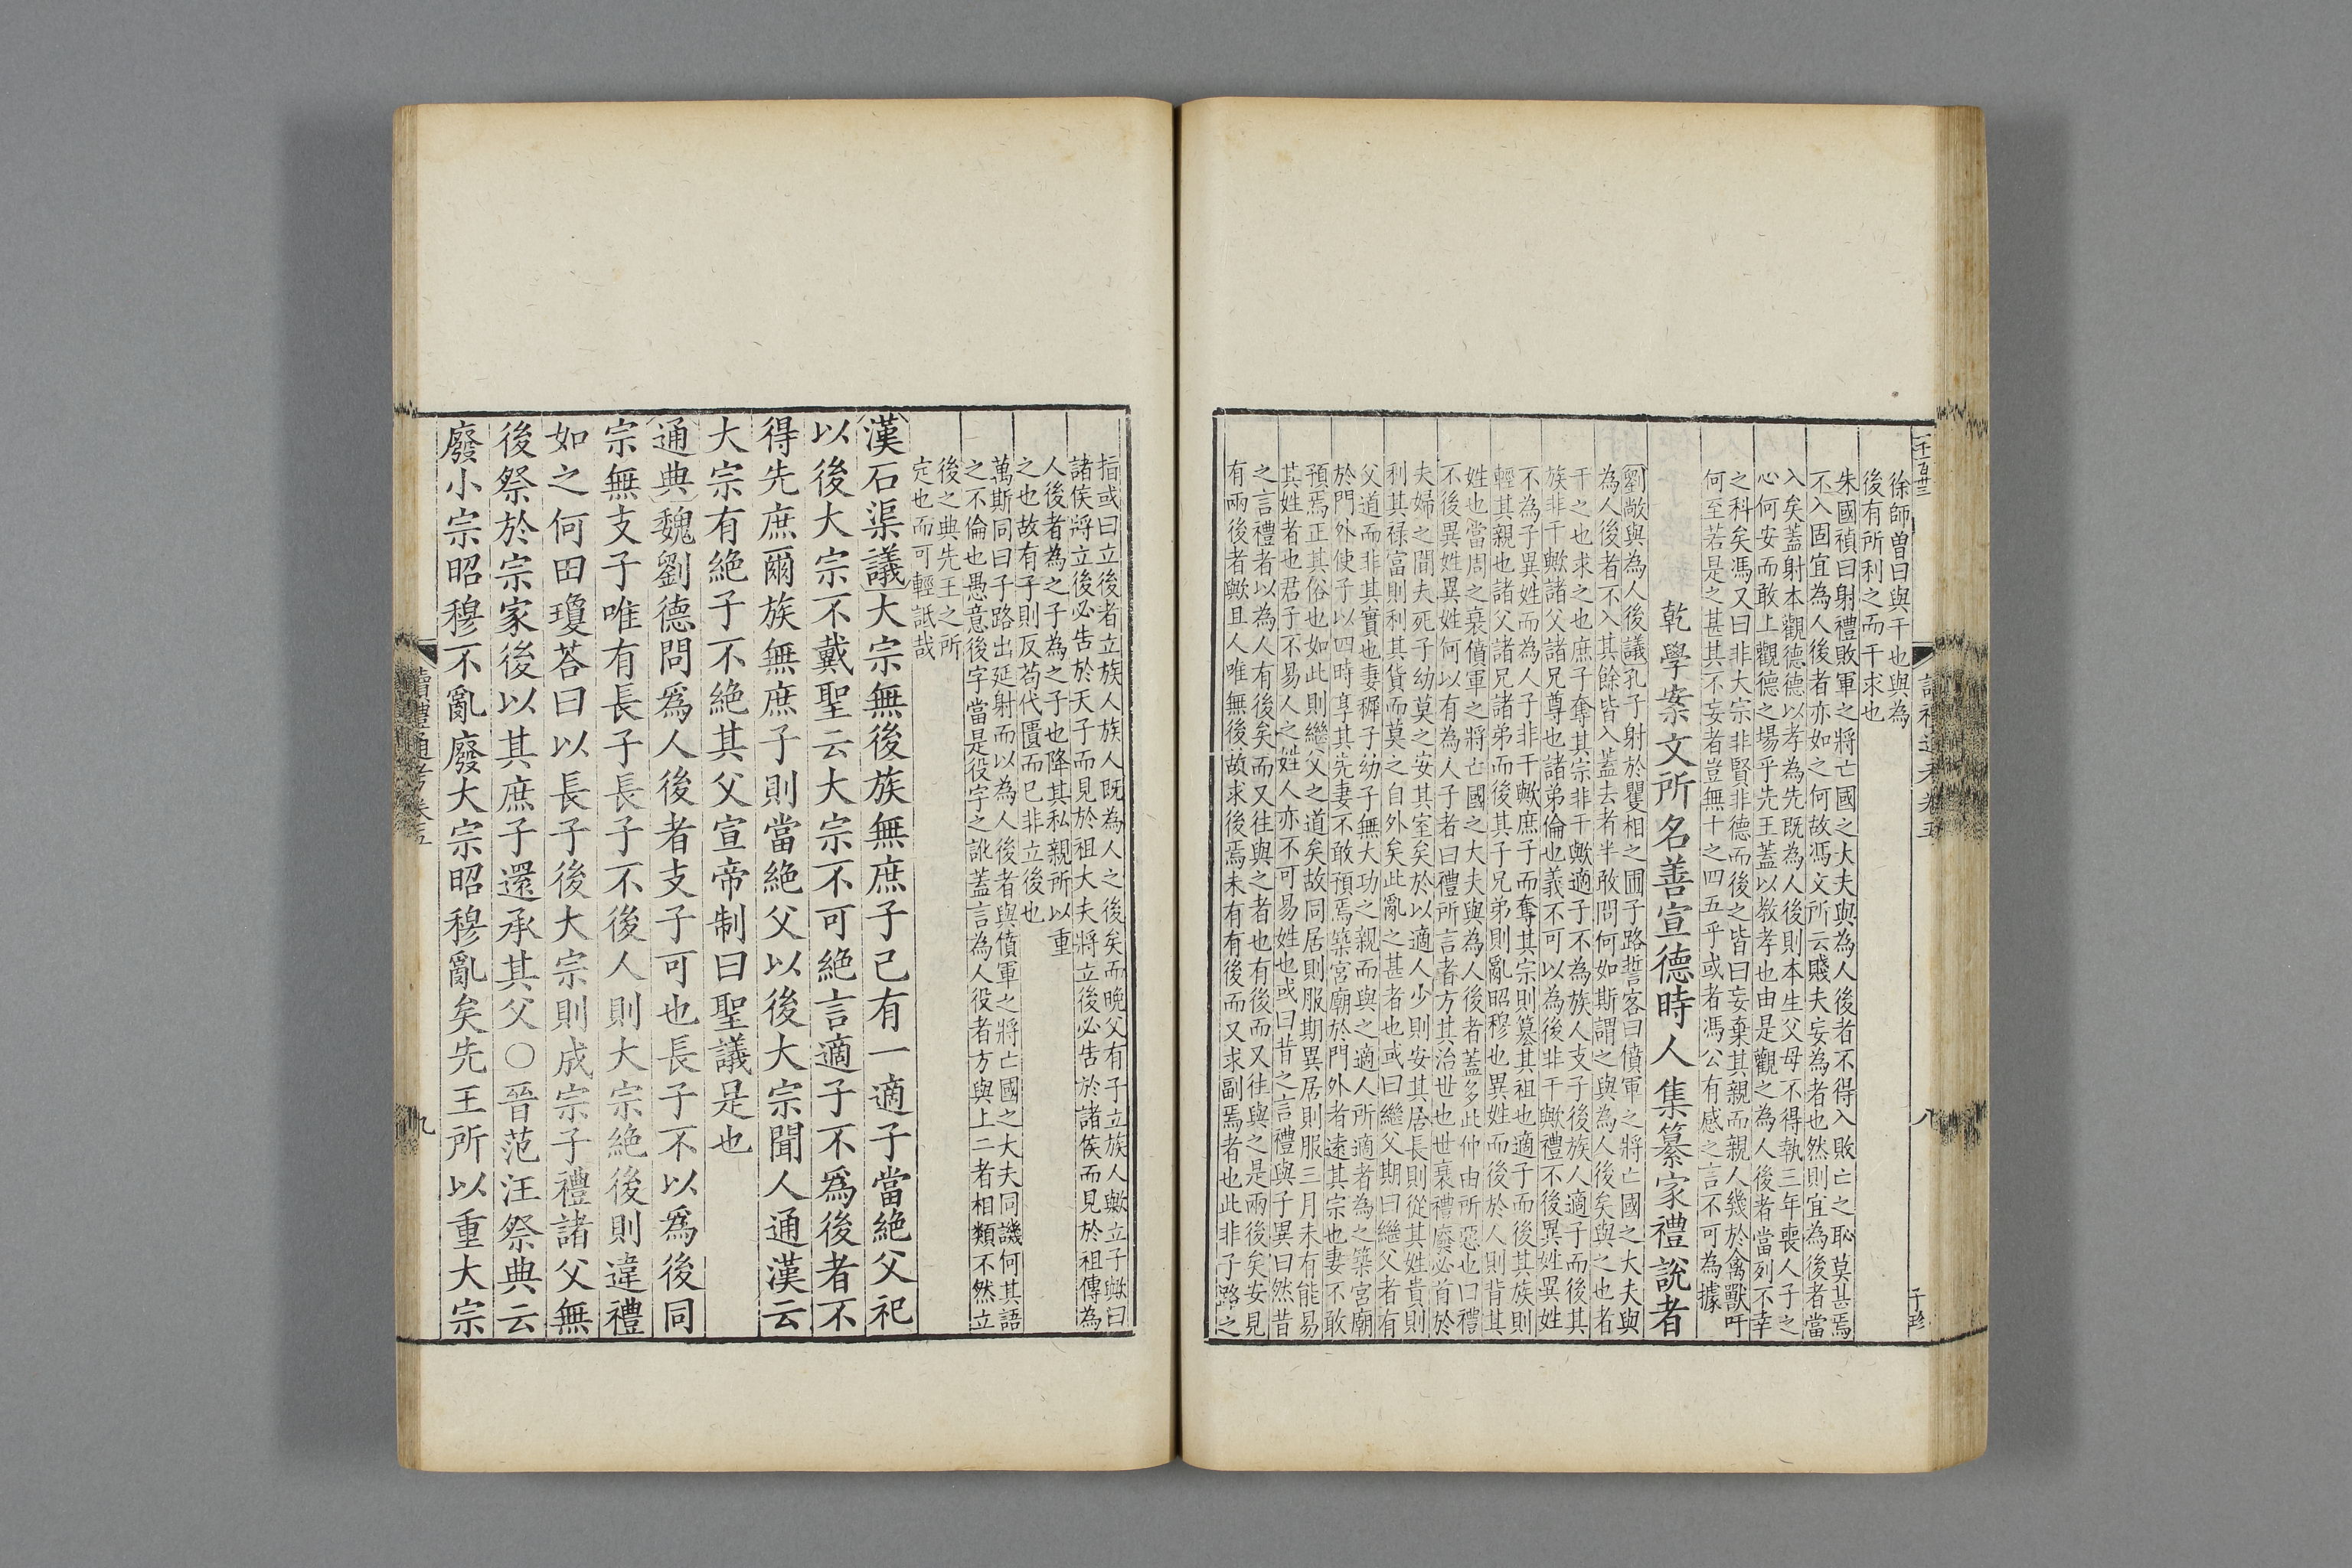 徐師曾曰與干也與為
後有所利之而干求也
朱國禎曰射禮敗軍之將亡國之大夫與為人後者不得入敗亡之恥莫甚焉
不入固宜為人後者亦如之何故馮文所云賤夫妄為者也然則宜為後者當
入矣蓋射本觀德德以孝為先既為人後則本生父母不得執三年喪人子之
心何安而敢上觀德之場乎先王蓋以教孝也由是觀之為人後者當列不幸
之科矣馮又曰非大宗非賢非德而後之皆曰妄棄其親而親人幾於禽獸吁
何至若是之甚其不妄者豈無十之四五乎或者馮公有感之言不可為據
乾學案文所名善宣德時人集纂家禮說者
劉敞與為人後議孔子射於矍相之圃子路誓客曰僨軍之將亡國之大夫與
為人後者不入其餘皆入蓋去者半敢問何如斯謂之與為人後矣與之也者
干之也求之也庶子奪其宗非干歟適子不為族人支子後族人適子而後其
族非干歟諸父諸兄尊也諸弟倫也義不可以為後非干歟禮不後異姓異姓
不為子異姓而為人子非干歟庶子而奪其宗則篡其祖也適子而後其族則
輕其親也諸父諸兄諸弟而後其子兄弟則亂昭穆也異姓而後於人則背其
姓也當周之衰僨軍之將亡國之大夫與為人後者蓋多此仲由所惡也曰禮
不後異姓異姓何以有為人子者曰禮所言者方其治世也世衰禮廢必首於
夫婦之間夫死子幼莫之安其室矣於以適人少則安其居長則從其姓貴則
利其祿富則利其貨而莫之自外矣此亂之甚者也或曰繼父期曰繼父者有
父道而非其實也妻穉子幼子無大功之親而與之適人所適者為之築宮廟
於門外使子以四時享其先妻不敢預焉築宮廟於門外者遠其宗也妻不敢
預焉正其俗也如此則繼父之道矣故同居則服期異居則服三月未有能易
其姓者也君子不易人之姓人亦不可易姓也或曰昔之言禮與子異曰然昔
之言禮者以為人有後矣而又往與之者也有後而又往與之是兩後矣安見
有兩後者歟且人唯無後故求後焉未有有後而又求副焉者也此非子路之
指或曰立後者立族人族人既為人之後矣而晚父有子立族人歟立子歟曰
諸侯將立後必告於天子而見於祖大夫將立後必告於諸侯而見於祖傳為
人後者為之子為之子也降其私親所以重
之也故有子則反苟代匱而已非立後也
萬斯同曰子路出延射而以為人後者與僨軍之將亡國之大夫同譏何其語
之不倫也愚意後字當是役字之訛蓋言為人役者方與上二者相類不然立
後之典先王之所
定也而可輕詆哉
漢石渠議大宗無後族無庶子己有一適子當絶父祀
以後大宗不戴聖云大宗不可絶言適子不爲後者不
得先庶爾族無庶子則當絶父以後大宗聞人通漢云
大宗有絶子不絶其父宣帝制曰聖議是也
通典魏劉德問爲人後者支子可也長子不以爲後同
宗無支子唯有長子長子不後人則大宗絶後則違禮
如之何田瓊荅曰以長子後大宗則成宗子禮諸父無
後祭於宗家後以其庶子還承其父〇晉范汪祭典云
廢小宗昭穆不亂廢大宗昭穆亂矣先王所以重大宗
讀禮通考卷五
九